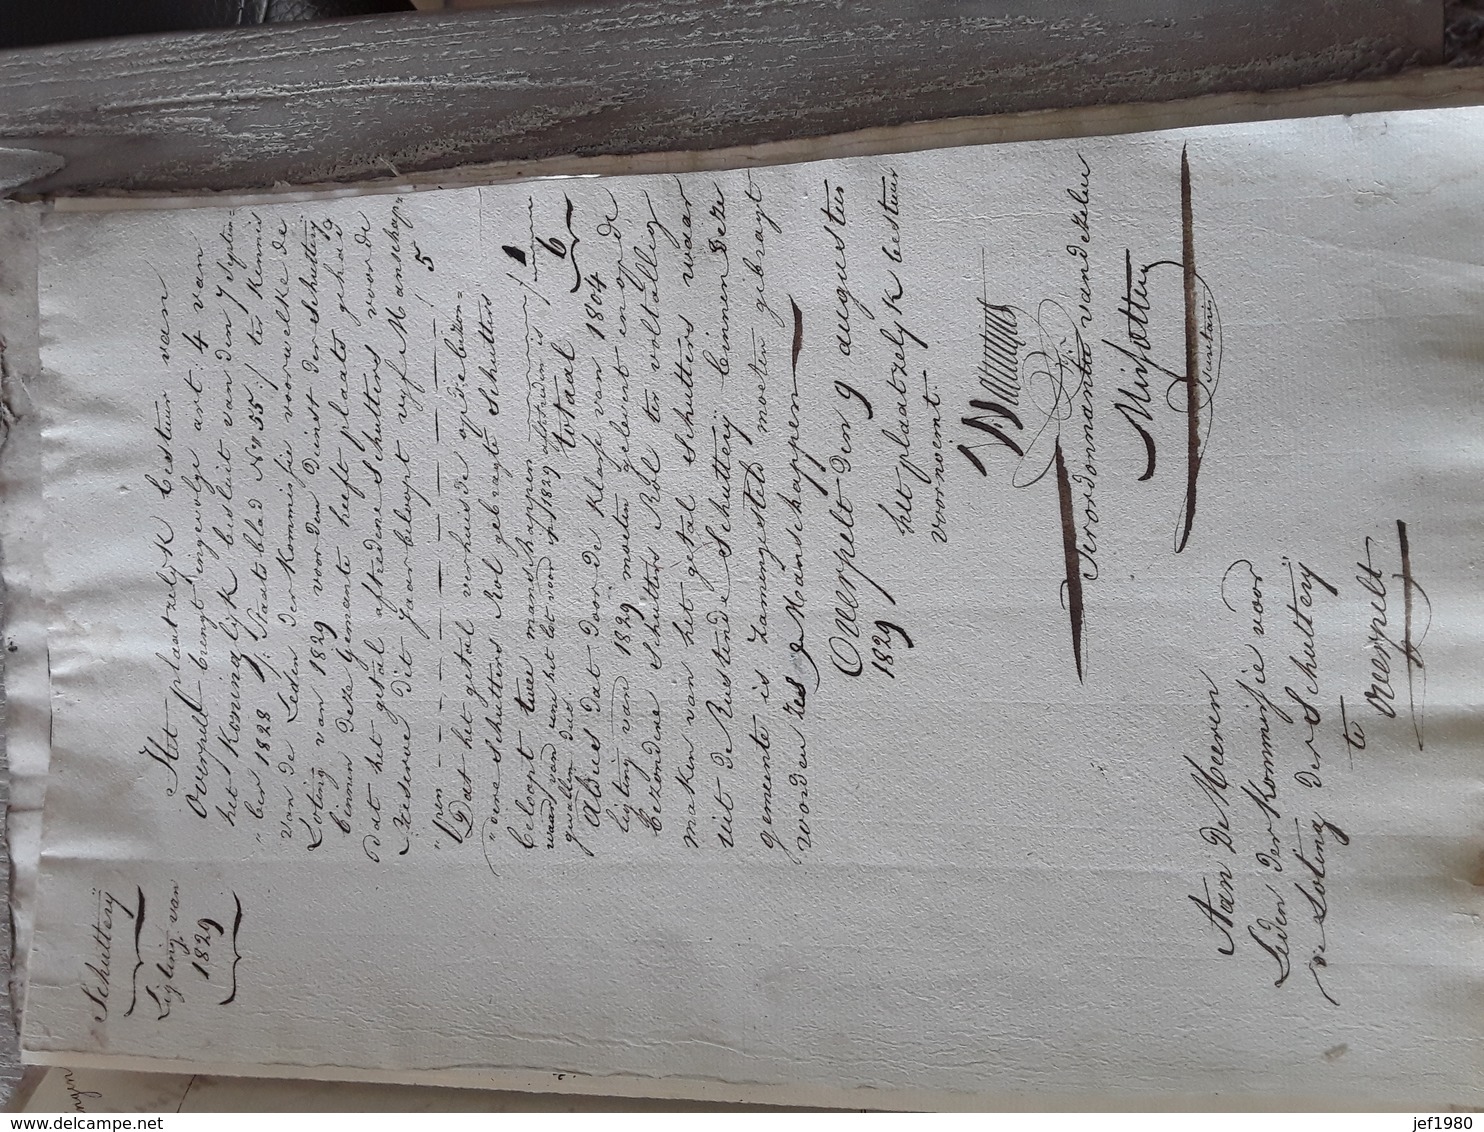 Schutterÿ
Ligting van
1829
Het plaatzelyk bestuur van
Overpelt brengt ingevolge art: 4 van
het Koninglÿk besluit van den 7 Septem=
"ber 1828 /: Staats blad N° 55 :/ ter kennis
van de Leden der Kommissie voor welke de
Loting van 1829 voor den Dienst der schutterÿ
binnen deze Gemeente heeft plaats gehad
dat het getal aftredene Schutters voor de
Reserve dit Jaar beloopt vyf Manschap=
"pen - - - - - - - - 5
Dat het getal verhuisde op de bezon=
"dere schutters Rol gebragte Schutters
beloopt twee manschappen
waar van een het lot voor 1829 aftreden is
quallen dus 1
totaal 6
Aldus dat door de Klasse van 1804
ligting van 1829 moeten gelevert en op de
bezondere Schutters Rol ten voltallig
maken van het getal schutters waar
uit de Rustende Schutterÿ binnen deze
gemeente is zamengesteld moeten gebragt
worden zes Manschappen
Overpelt den 9 augustus
1829
het plaatzelyk bestuur
voornoemt.
Ter ordonnantie van dezelven
Secretaris
Aan De Heeren
Leden der Kommissie voor
de Loting der Schutterÿ
te
Overpelt
ngen
www.delcampe.net
jef1980